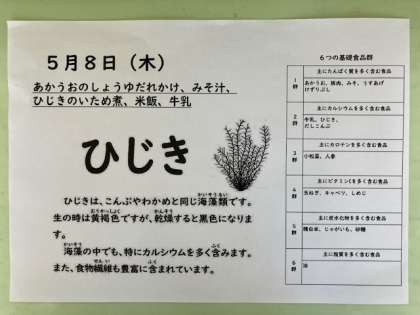 5月8日（木）
あかうおのしょうゆだれかけ、みそ汁、
ひじきのいため煮、米飯、牛乳
ひじき
ひじきは、こんぶやわかめと同じ海藻類です。
生の時は黄褐色ですが、乾燥すると黒色になりま
す。
海藻の中でも、特にカルシウムを多く含みます。
また、食物繊維も豊富に含まれています。
6つの基礎食品群
主にたんぱく質を多く含む食品
1群
あかうお、豚肉、みそ、うすあげ
けずりぶし
主にカルシウムを多く含む食品
2群
牛乳、ひじき、
だしこんぶ
主にカロテンを多く含む食品
3群
小松菜、人参
主にビタミンCを多く含む食品
4群
玉ねぎ、キャベツ、しめじ
主に炭水化物を多く含む食品
5群
精白米、じゃがいも、砂糖
主に脂質を多く含む食品
6群
油